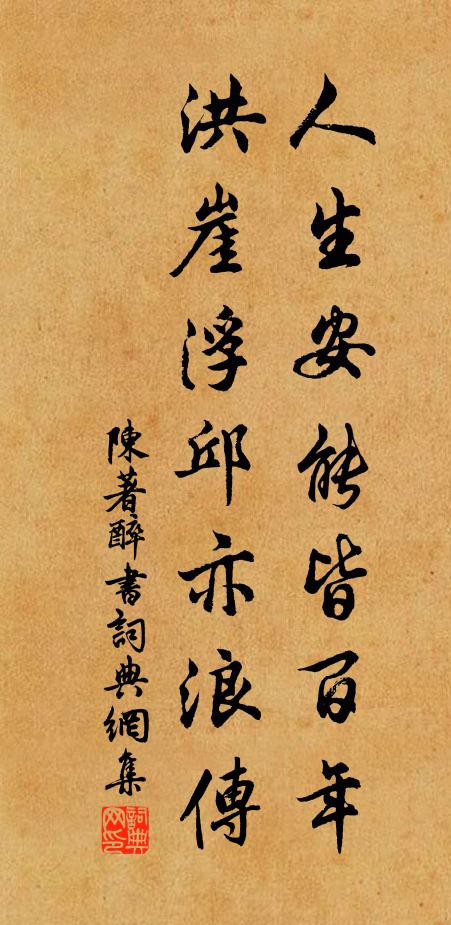 人生安能皆百年
洪崖浮邱亦浪傳
陳著醉書詞典網集
詞典网印